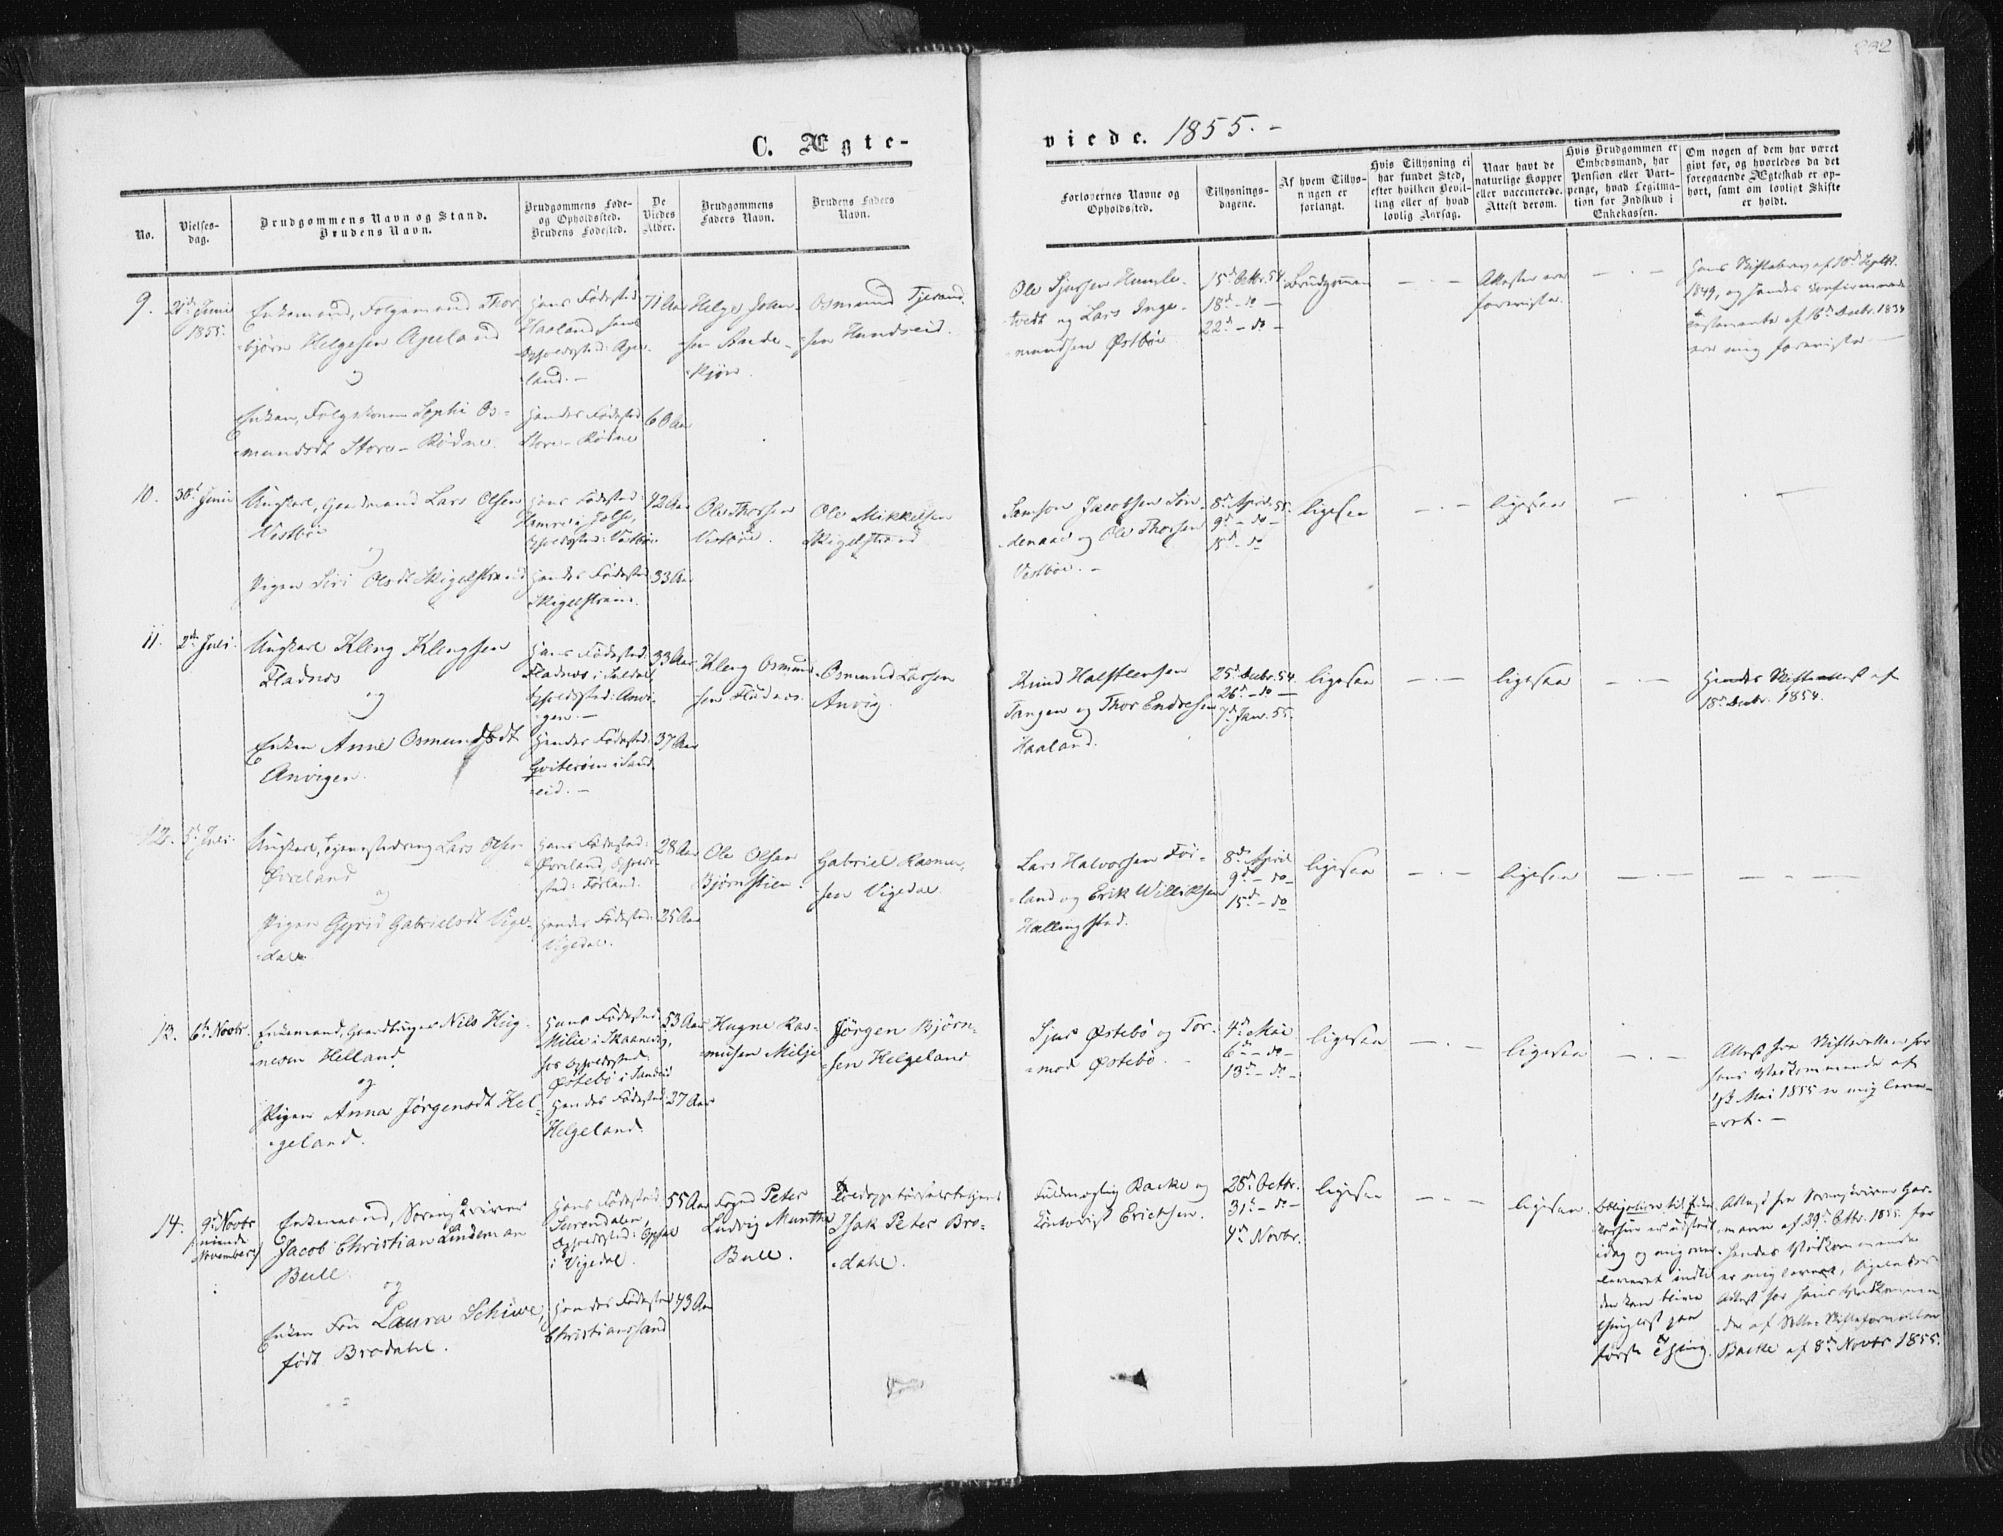 232
C. Ægte-
viede. 1855.-
No.
Vielses-
dag.
Brudgommens Navn og Stand.
Brudens Navn.
Brudgommens Føde-
og Opholdssted.
Brudens Fødested.
De
Viedes
Alder.
Brudgommens
Faders Navn.
Brudens Faders
Navn.
Forlovernes Navne og
Opholdssted.
Tillysnings-
dagene.
Af hvem Tillys-
ningen er
forlangt.
Hvis Tillysning ei
har fundet Sted,
efter hvilken Bevil-
ling eller af hvad
lovlig Aarsag.
Naar havt de
naturlige Kopper
eller vaccinerede.
Attest derom.
Hvis Brudgommen er
Embedsmand, har
Pension eller Vart-
penge, hvad Legitima-
tion for Indskud i
Enkekassen.
Om nogen af dem har været
givt før, og hvorledes da det
foregaaende Ægteskab er op-
hørt, samt om lovligt Skifte
er holdt.
9.
21de Juni
1855.
Enkemand, Folgemand Thor-
bjørn Helgesen Apeland
og
Enken, Folgekone Sophi Os-
mundsdt Store-Rødne.
Hans Fødested
Haaland, hans
Opholdssted: Ape-
land.-
Hendes Fødested
Store-Rødne
71 Aar
60 Aar
Helge John-
sen Ande-
Osmund Tjerand-
sen Hundseid.
Ole Sjursen Humle-
tvedt og Lars Inge-
mundsen Østbøe
15de Octbr. 54
18de - do -
22de - do -
Brudgommen
- . -
Attester ere
foreviste.
- . -
Hans Skiftebrev af 10de Septbr.
1849, og hendes confirmerede
Testamente af 16de Decbr. 1834
ere mig foreviste.
10.
30te Juni
Ungkarl, Gaardmand Lars Olsen
Vestbøe
og
Pigen Siri Olsdt Skigelstrand
Hans Fødested:
Opholdssted: Vestbøe
Hendes Fødested
Skigelstrand.
42 Aar
33 Aar
Ole Thorsen
Vestbøe.
Ole Mikkelsen
Skigelstrand
Samson Jacobsen Søn-
denaae og Ole Thorsen
Vestbøe.-
8de April 55.
9de - do -
15de - do
ligesaa
- . -
ligesaa
-
- . -
11.
2den Juli.
Ungkarl Kleng Klengsen
Fladnes
og
Enken Anne Osmundsdt
Anvigen.
Hans Fødested:
Fladnes i Suldal,
Opholdssted: Anvi-
gen.-
Hendes Fødested:
Hviteröen i Sand-
eid.-
33 Aar
37 Aar
Kleng Osmund-
sen Fladnes.
Osmund Larsen
Anvig.
Knud Halstensen
Tangen og Thor Endresen
Haaland.
25de Decbr. 54.
26de - do -
7de Janr. 55.
ligesaa
- . -
ligesaa
- . -
Hendes Skifteattest af
18de Decbr. 1854.
12.
5te Juli.
Ungkarl, Lars Olsen
Øvreland
og
Pigen Gyrid Gabrielsdt Vige-
dal.
Hans Fødested:
Øvreland, Ophold-
sted: Førland.
Hendes Fødested:
Vigedal.
28 Aar
25 Aar
Ole Olsen
Bjørnstien.
Gabriel Rasmus-
sen Vigedal
Lars Halvorsen För-
land og Erik Willikssen
Hallingstad.
8de April
9de - do -
15de - do
ligesaa
- . -
ligesaa
- . -
- . -
13.
6te Novbr.
Enkemand, Gaardbruger Nils Hug-
nesen Helland
og
Pigen Anna Jørgensdt Hel-
geland.
Hans Fødested
Milje i Skaanevig,
hs Opholdssted.
Østebö i Sandeid
Hendes Fødested:
Helgeland.
53 Aar
27 Aar
Hugne Ras-
musen Milje
Jørgen Bjørn-
sen Helgeland
Sjur Østebö og Tor-
mod Østebö.
4de Mai
6te - do -
13de - do -
ligesaa
- . -
ligesaa
- . -
Attest fra Skifteretten for
hans Vedkommende af
Mai 1855 er mig leve-
ret.-
14.
9de Novbr
(niende
November)
Enkemand, Sorenskriver
Jacob Christian Lindeman
Bull.
og
Enken Fru Laura Schiwe,
født Brodahl.
Hans Fødested:
Surendalen,
Opholdssted: Opsal
i Vigedal.
Hendes Fødested
Christianssand
55 Aar
43 Aar
Foged Peter
Ludvig Munthe
Bull.
Isak Peter Bro-
dahl.
Fuldmægtig Backe og
Erichsen.
28de Octbr.
31te - do -
4de Novbr.
ligesaa
- . -
ligesaa.
Obligation til Enke-
kassen er udstedt
idag og mig over-
leveret indtil
den kan blive
thinglæst paa
første Thing.
Attest fra Sorenskriver Har-
mann af 29de Octbr. 1855. for
hendes Vedkommende
er mig leveret, ligeledes
Attest for hans Vedkommen-
de af
Backe af 8de Novbr 1855.